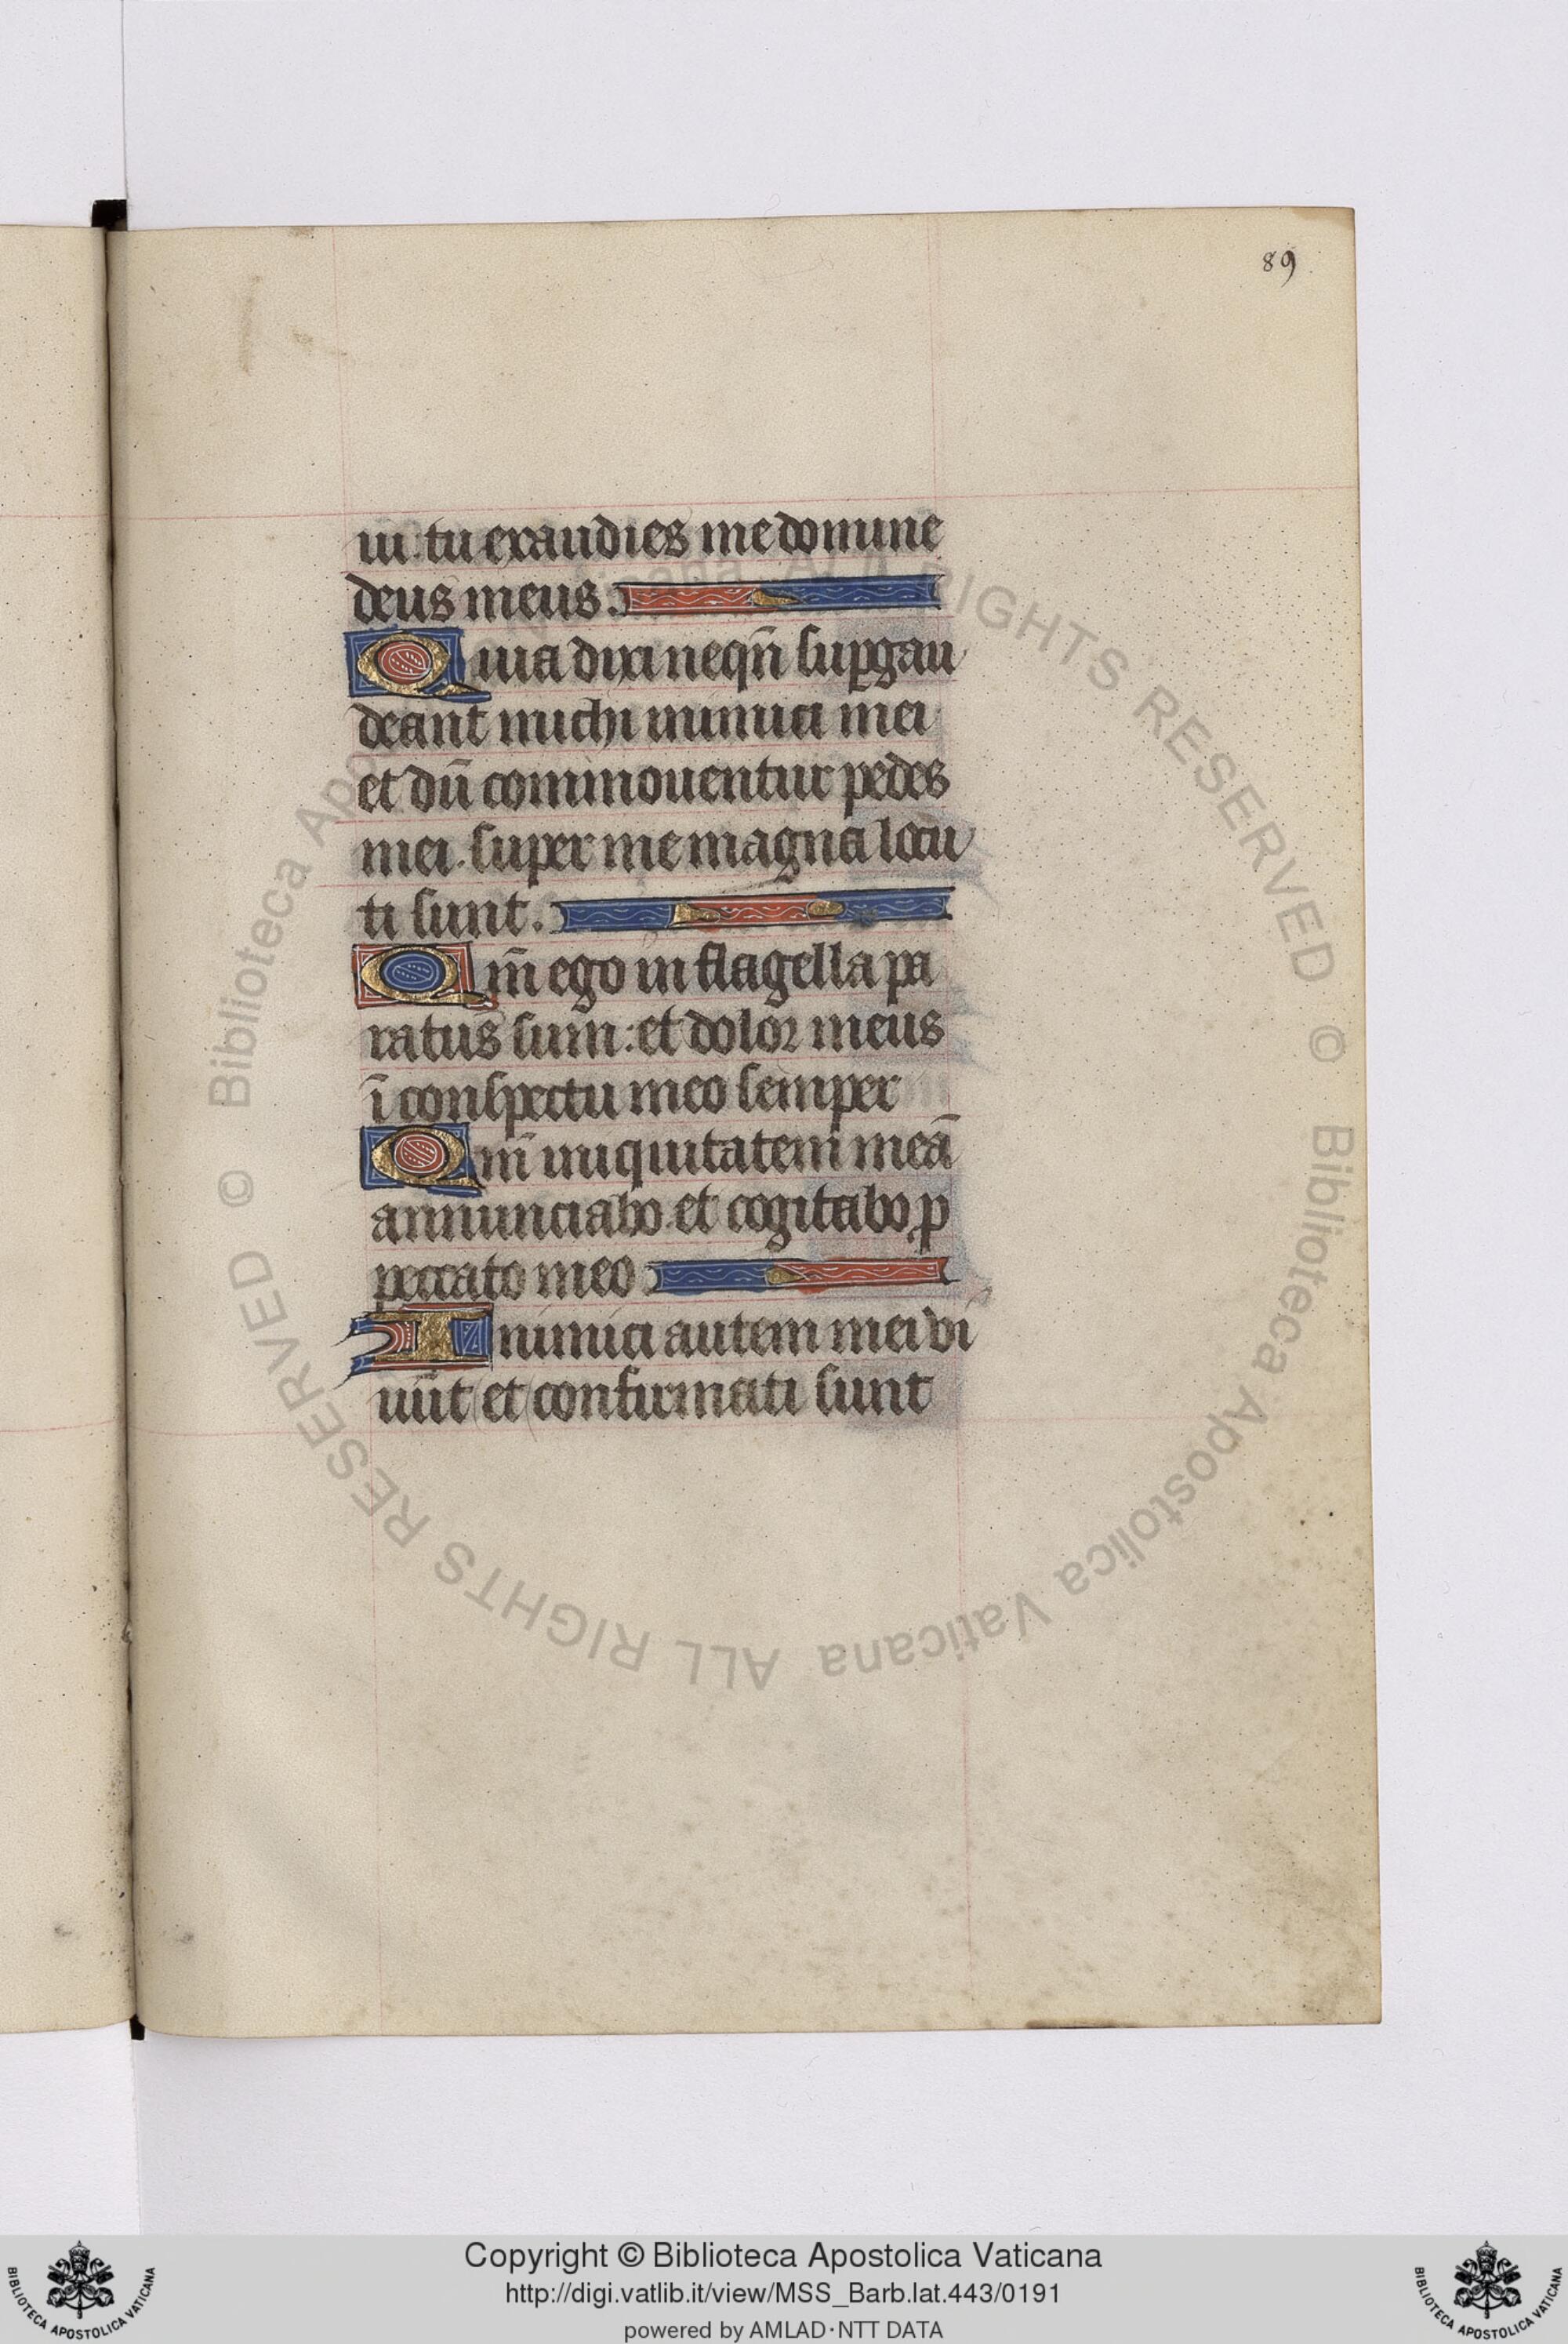 89
ui. tu exaudies me domine
deus meus.
Quia dixi neqn̄ sup̱gau
deant michi inimici mei
et dū commouentur pedes
mei. super me magna locu
ti sunt.
Qm̄ ego in flagella pa
ratus sum: et dolor meus
ī conspectu meo semper
Qm̄ iniquitatem meā
annunciabo. et cogitabo p̱
peccato meo
Inimici autem mei vi
uūt et confirmati sunt
© Biblioteca Apostolica Vaticana ALL RIGHTS RESERVED © Biblioteca Apostolica Vaticana ALL RIGHTS RESERVED
Copyright © Biblioteca Apostolica Vaticana
http://digi.vatlib.it/view/MSS_Barb.lat.443/0191
powered by AMLAD·NTT DATA
BIBLIOTECA APOSTOLICA VATICANA
BIBLIOTECA APOSTOLICA VATICANA